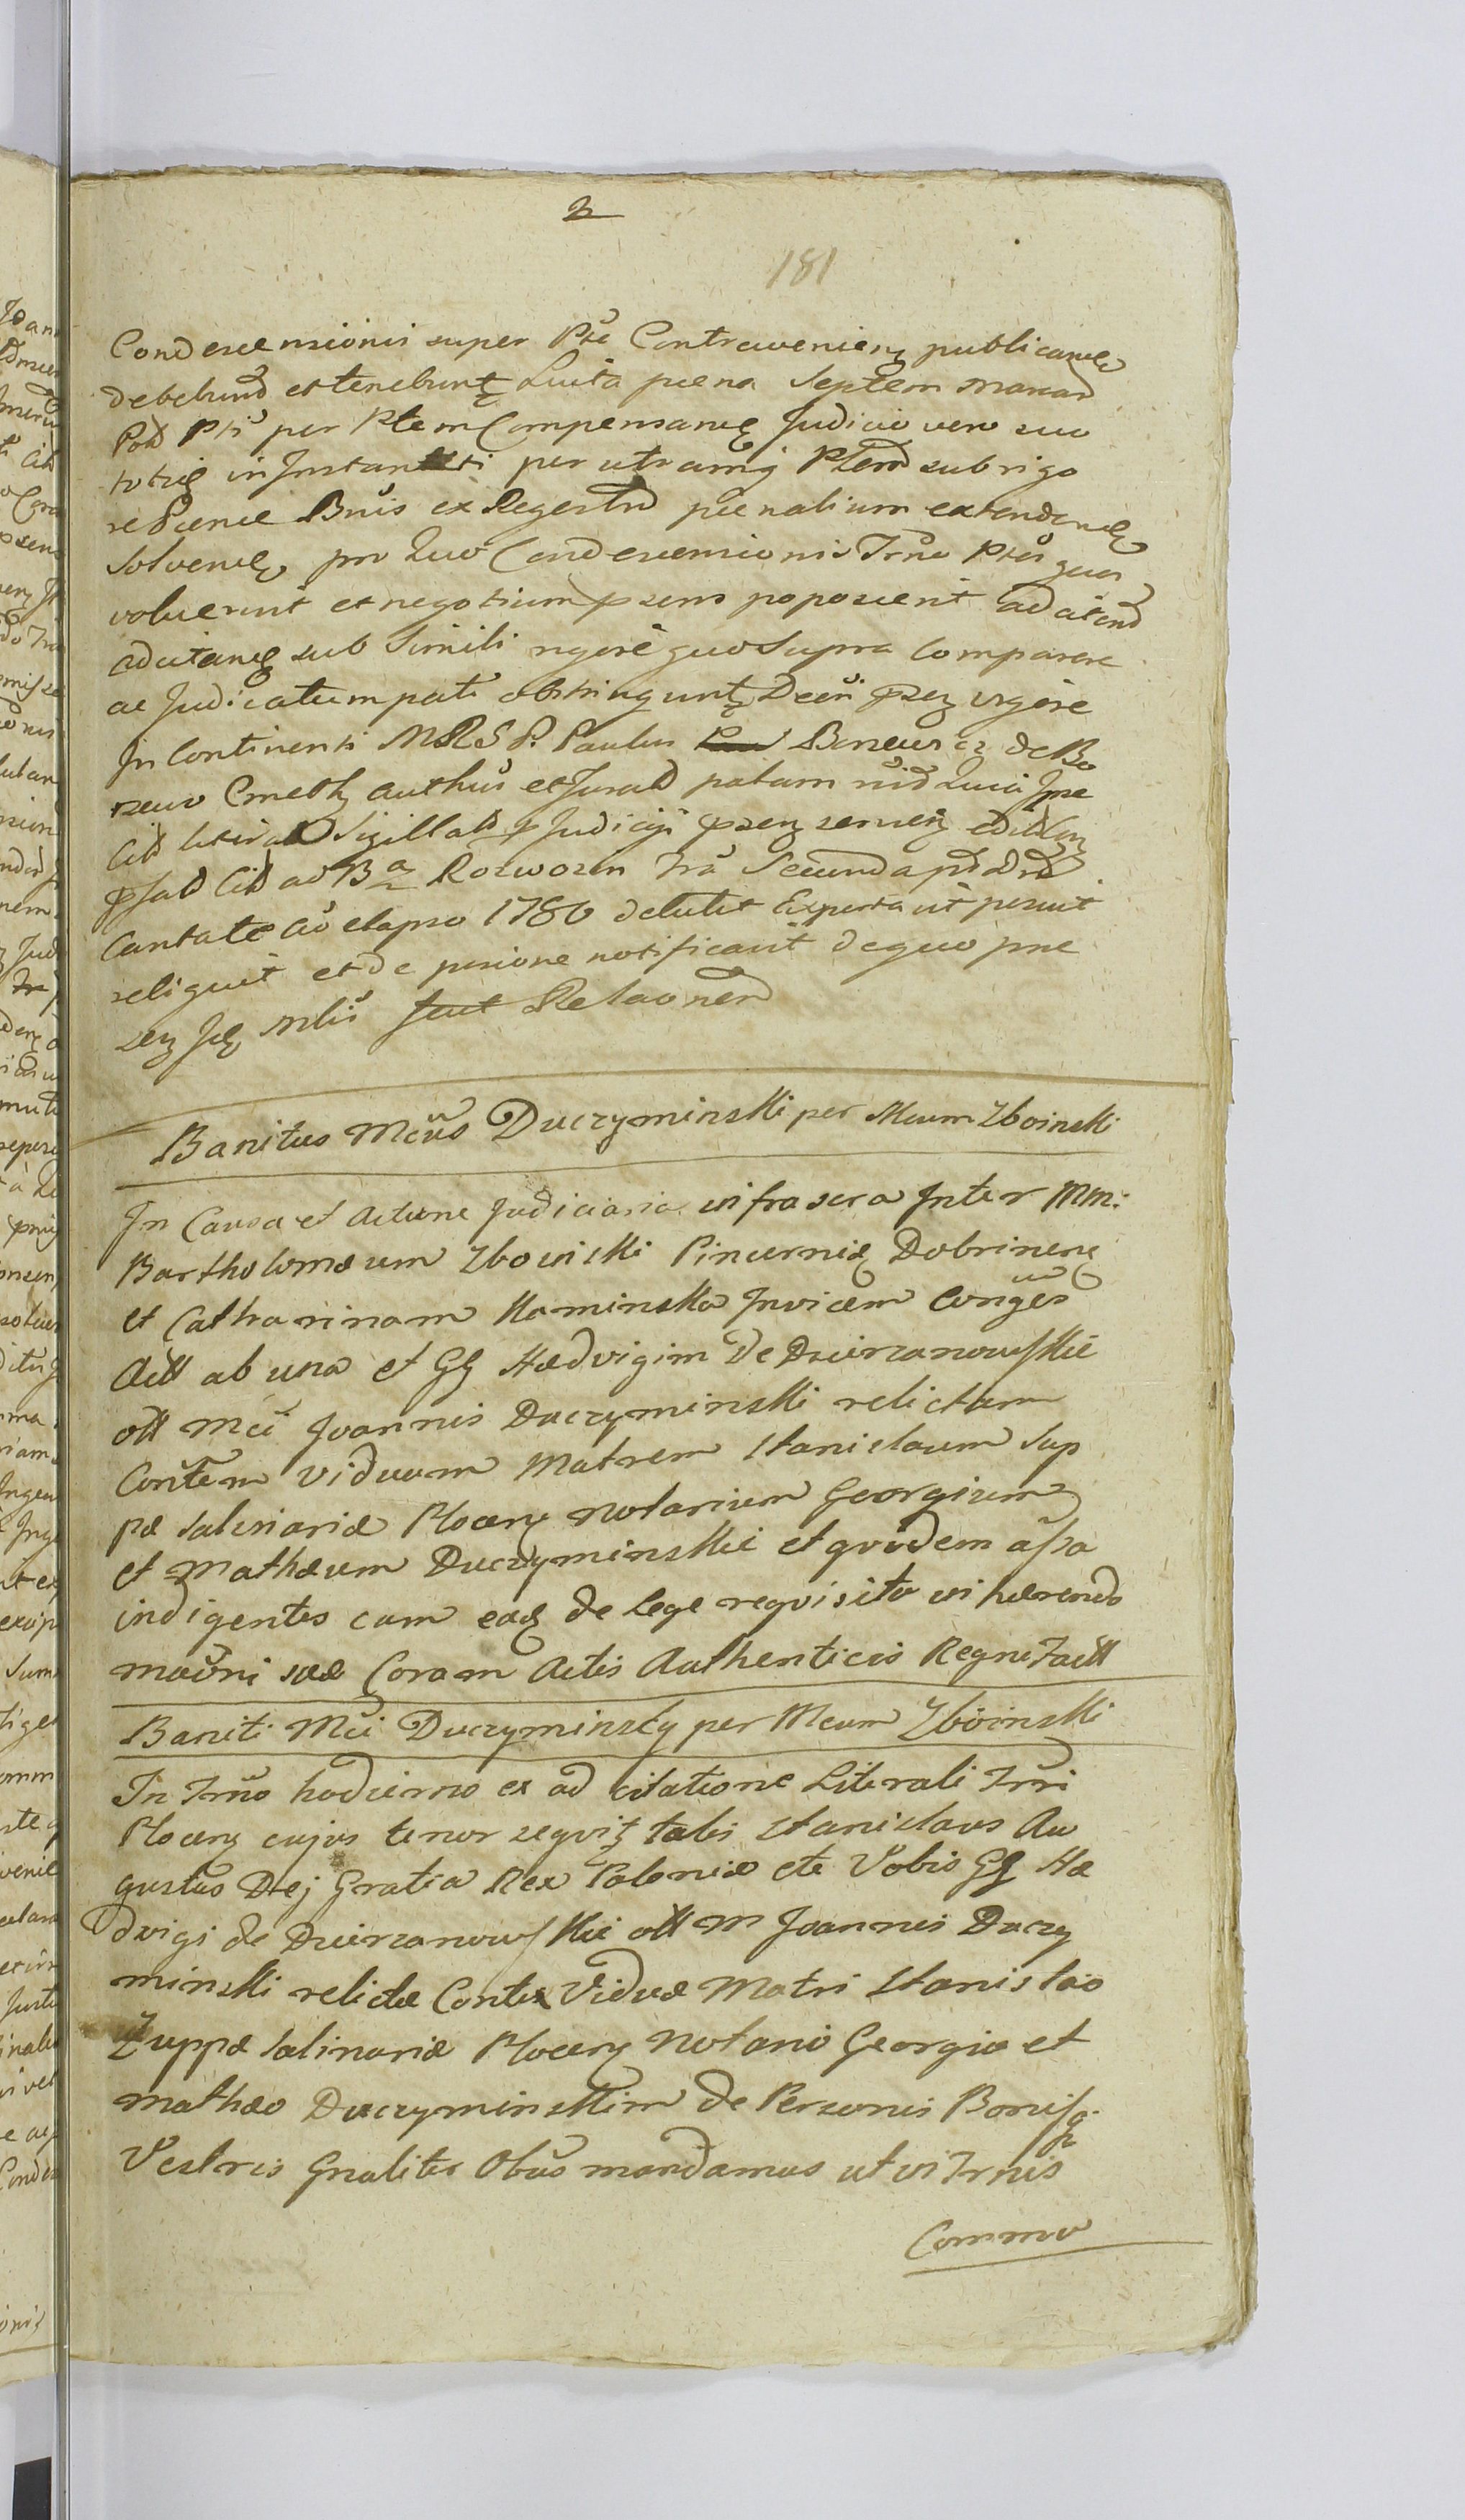 2
181
Condescensionis super Pte Contravenienʒ publicanɖ
debebund et tenebuntʒ Luita pœna Septem marcard
Pold Pti per Ptem Compensanɖ Judicio vero suo
totieɖ in Instanti per utramqʒ Ptem sub rigo
re Pœnæ Bnis ex Regestro pœnalium extendenɖ
Solvenɖ, pro quo Condescensionis Trno Ptes quos
voluerint et negotium psens poposcerit ad citand
adcitanɖ sub Simili rygore quo Supra Comparere
ac Judicatum pati obstringuntʒ Decri psenʒ vigore
In Continenti MRS P. Paulus Borzewicz de Bo
rzewo Cmethʒ authus et Jurad palam
Citd literald Sigillatd Judicij psenʒ
Citd ad Ba Rozwozin Tra Secunda
Cantate ao elapso 1786 detulit Exporta ut posuit
reliquit et de pōione notificavit de quo prae
senʒ Jɖ mlis fecit Relaonem
Banitus Mcus Duczyminski per Mcum Zboinski
In Causa et Actione Judiciaria infrascra Inter MM:
Bartholomæum Zboinski Pincernæ Dobrinenʒ
et Catharinam Kaminska Invicem Conges
Actt ab una et GG Hædvigim de Dzierzanowskie
olt Mci Joannis Duczyminski relictam
Contem viduam Matrem Stanislaum Sup
pæ Salinariæ Plocenʒ Notarium Georgium
et Mathæum Duczyminskie et quidem assa
indigentes cum eadɖ de lege requisito inhærendo
mauni suæ Coram Actis Authenticis Regni factt
Baniti Mci Duczyminscy per Mcum Zboinski
In Trno hodierno ex ad citatione Literali Trri
Plocenʒ cujus tenor sequitʒ talis Stanislaus Au
gustus Dej Gratia Rex Poloniæ etc Vobis GG Hæ
dvigi de Dzierzanowskie olt M Joannis Duczy
minski relictæ Contis Viduæ Matri Stanislao
Zuppæ Salinariæ Plocenʒ Notario Georgio et
Mathæo Duczyminskim de Personis Bonisqʒ
Vestris Gnaliter Obus mandamus ut in Trnis
Commo